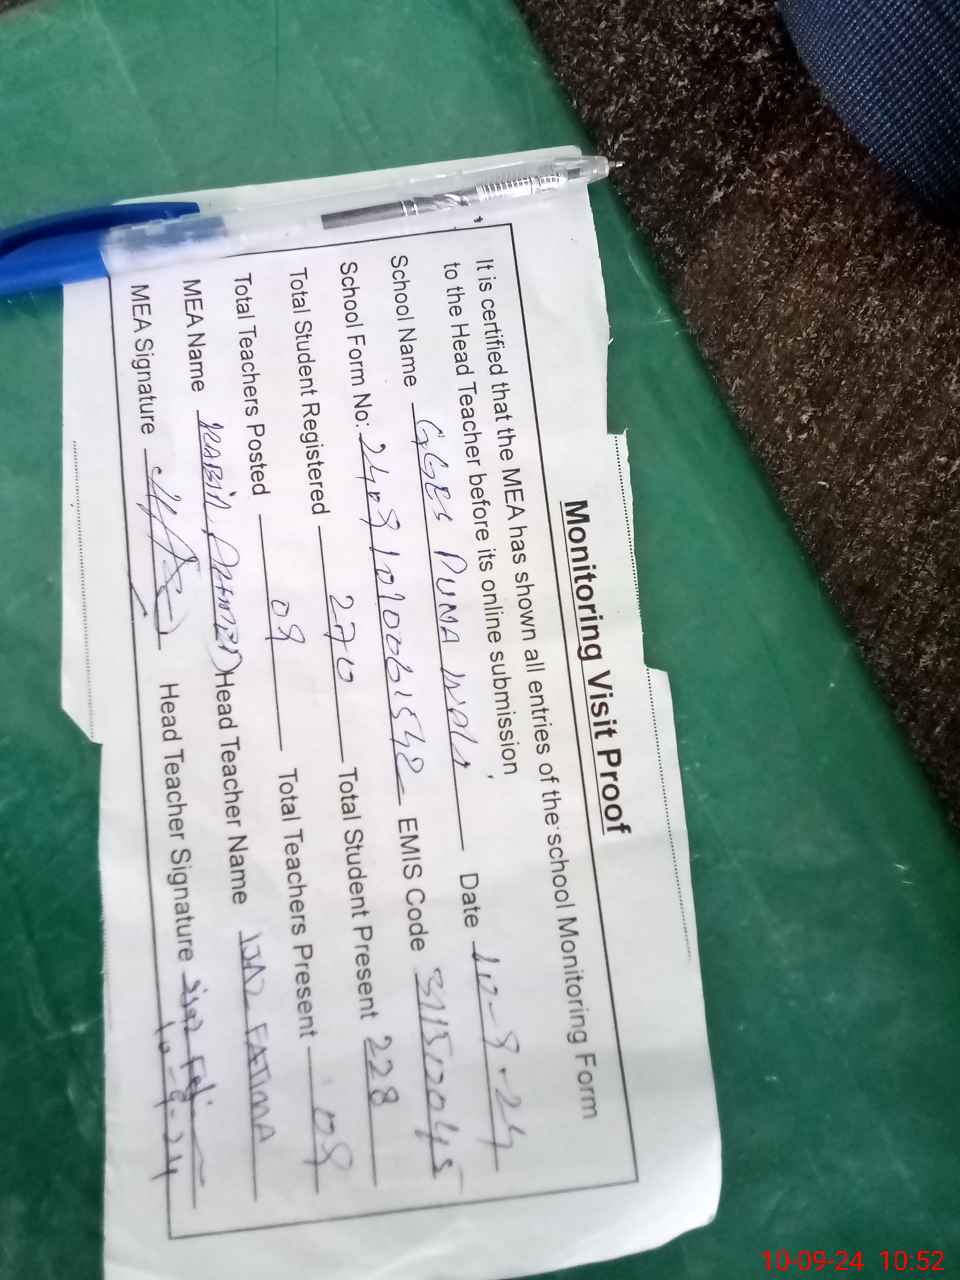 Monitoring Visit Proof
It is certified that the MEA has shown all entries of the school Monitoring Form
to the Head Teacher before its online submission
School Name GGES PUNA Date 10-9-24
School Form No: EMIS Code
Total Student Registered 270 Total Student Present 228
Total Teachers Posted 09 Total Teachers Present 09
MEA Name Head Teacher Name FATIMA
MEA Signature Head Teacher Signature
10-9-24
10-09-24 10:52